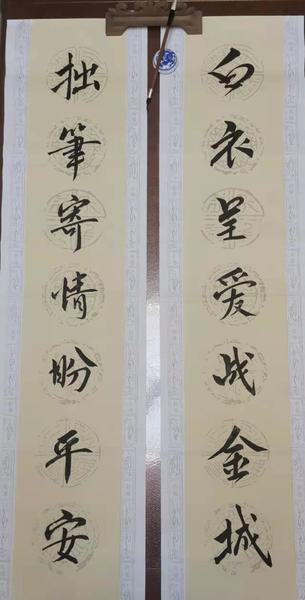 白衣呈爱战金城
拙筆寄情盼平安